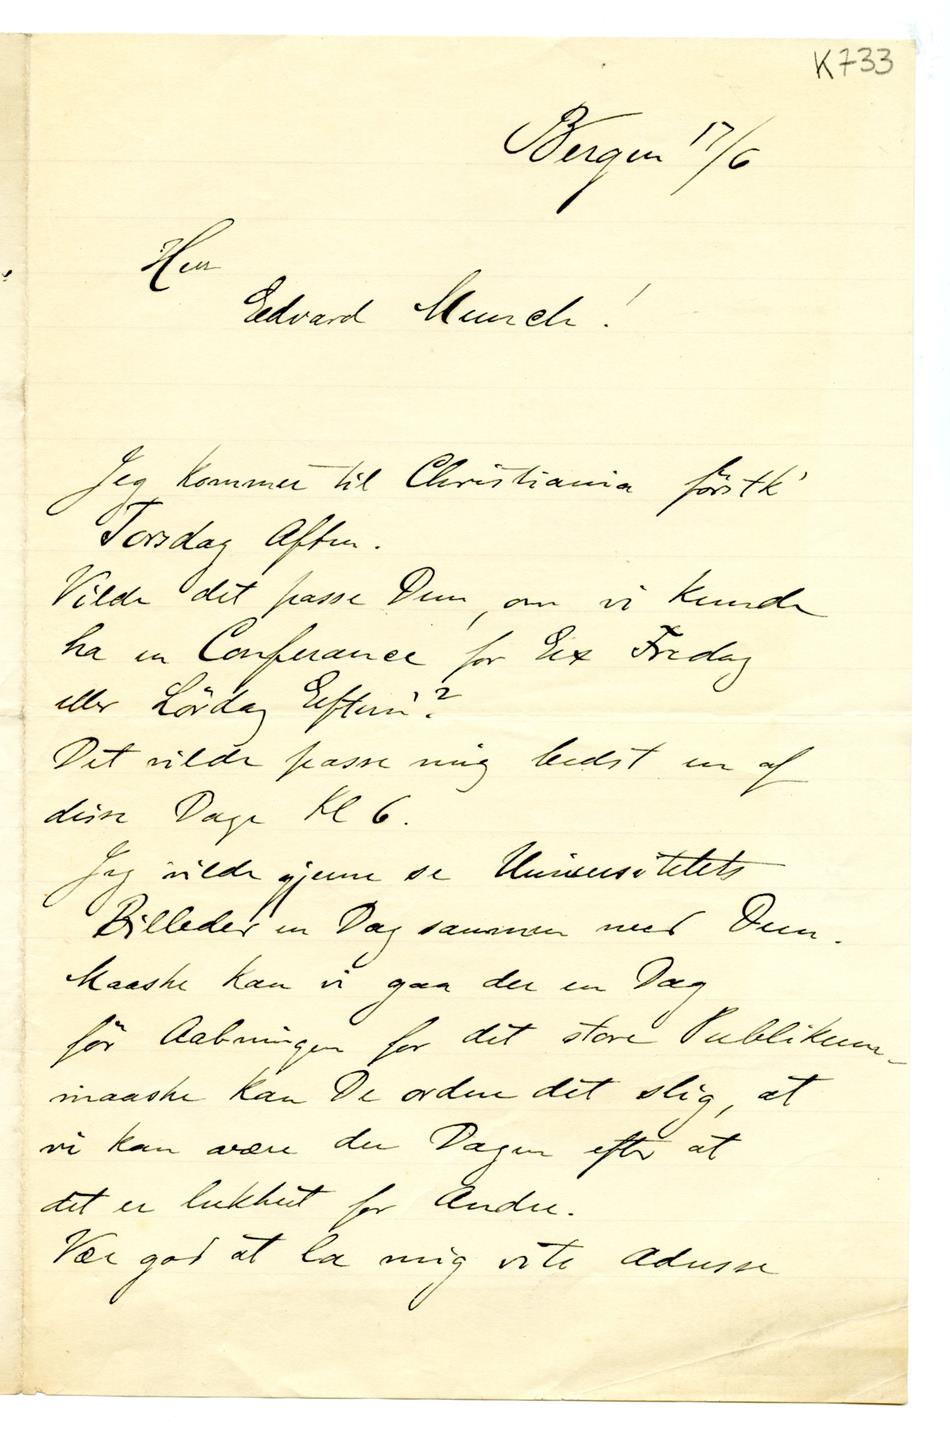 K733
Bergen 17/6
Herr
Edvard Munch!
Jeg kommer til Christiania förstk'
Torsdag Aften.
Vilde det passe Dem, om vi kunde
ha en Conferance for Ex Fredag
eller Lördag Efterm?
Det vilde passe mig bedst en af
disse Dage Kl 6.
Jeg vilde gjerne se Universitetets
Billeder en Dag sammen med Dem.
Maaske kan vi gaa der en Dag
för Aabningen for det store Publikum –
maaske kan De ordne det slig, at
vi kan være der Dagen efter at
det er lukket for Andre.
Vær god at la mig vite Adresse